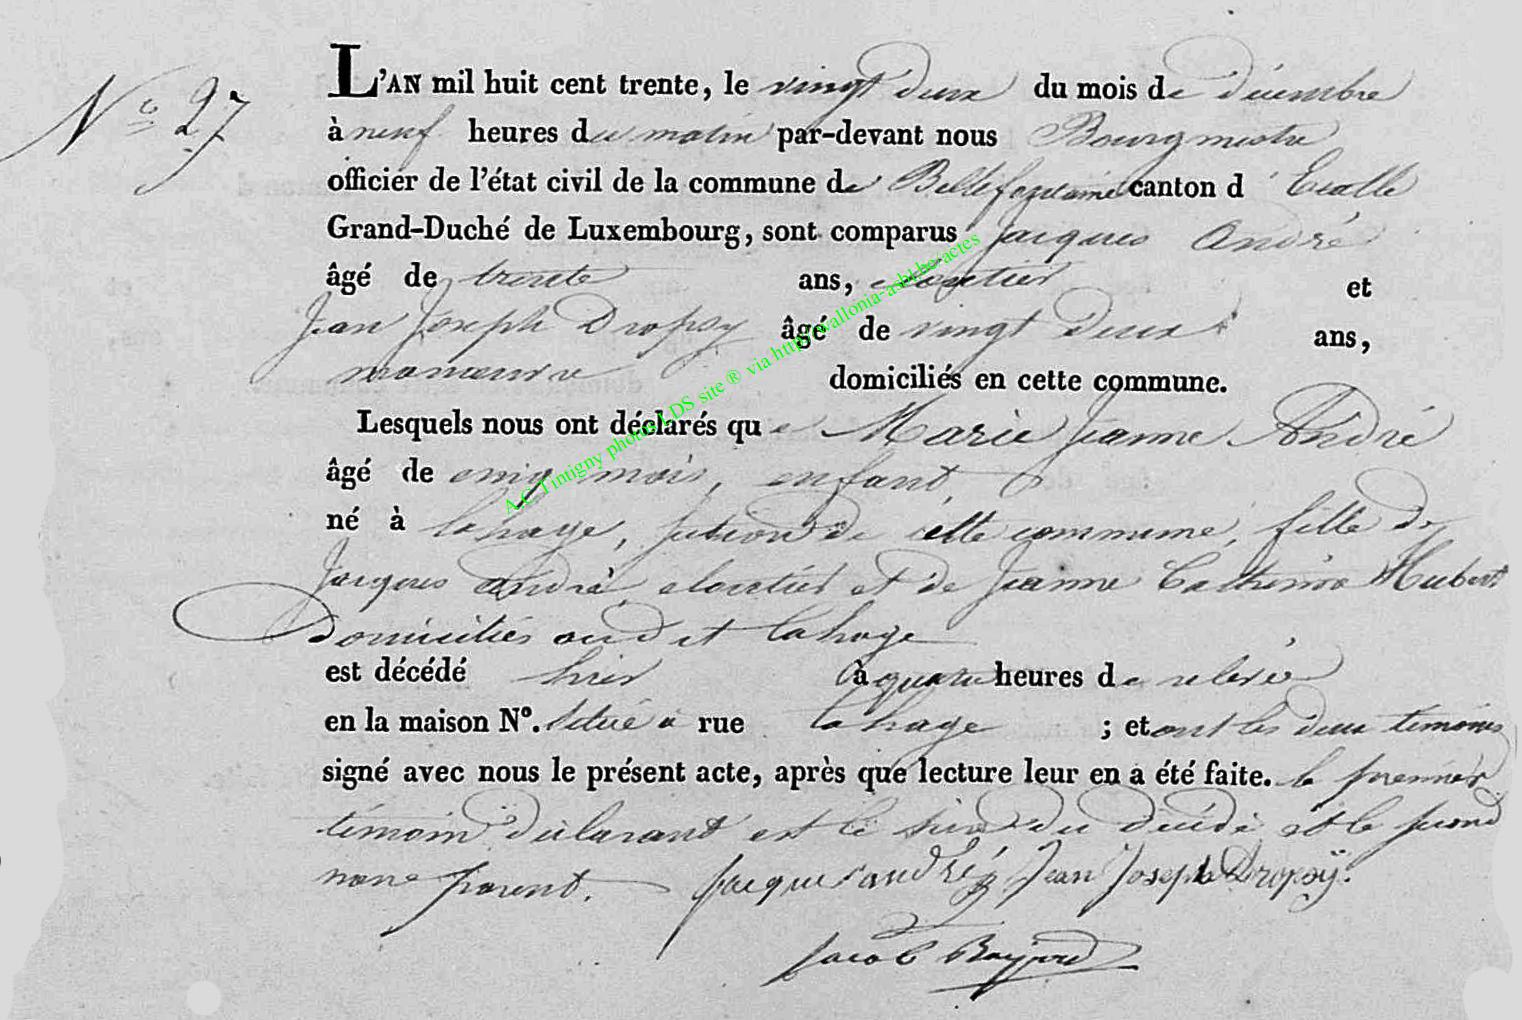 N° 27
L'AN mil huit cent trente, le vingt deux du mois de décembre
à neuf heures du matin par-devant nous Bourgmestre
officier de l'état civil de la commune de Bellefontaine canton d'Etalle
Grand-Duché de Luxembourg, sont comparus Jacques André
âgé de trente ans, cloutier et
Jean Joseph Dropsy âgé de vingt deux ans,
manoeuvre domiciliés en cette commune.
Lesquels nous ont déclarés que Marie Jeanne André
âgé de cinq mois, enfant,
né à lahage, section de cette commune, fille de
Jacques André, cloutier et de Jeanne Catherine Hubert
domiciliés audit lahage
est décédé hier à quatre heures de relevée
en la maison N°. située à rue lahage ; et ont les deux témoins
signé avec nous le présent acte, après que lecture leur en a été faite. le premier
témoin déclarant est le père du décédé et le second
non parent. Jacques andré Jean Joseph Dropsÿ.
Jacob
A.C Tintigny photos LDS site ® via http://wallonia-asbl.be-actes